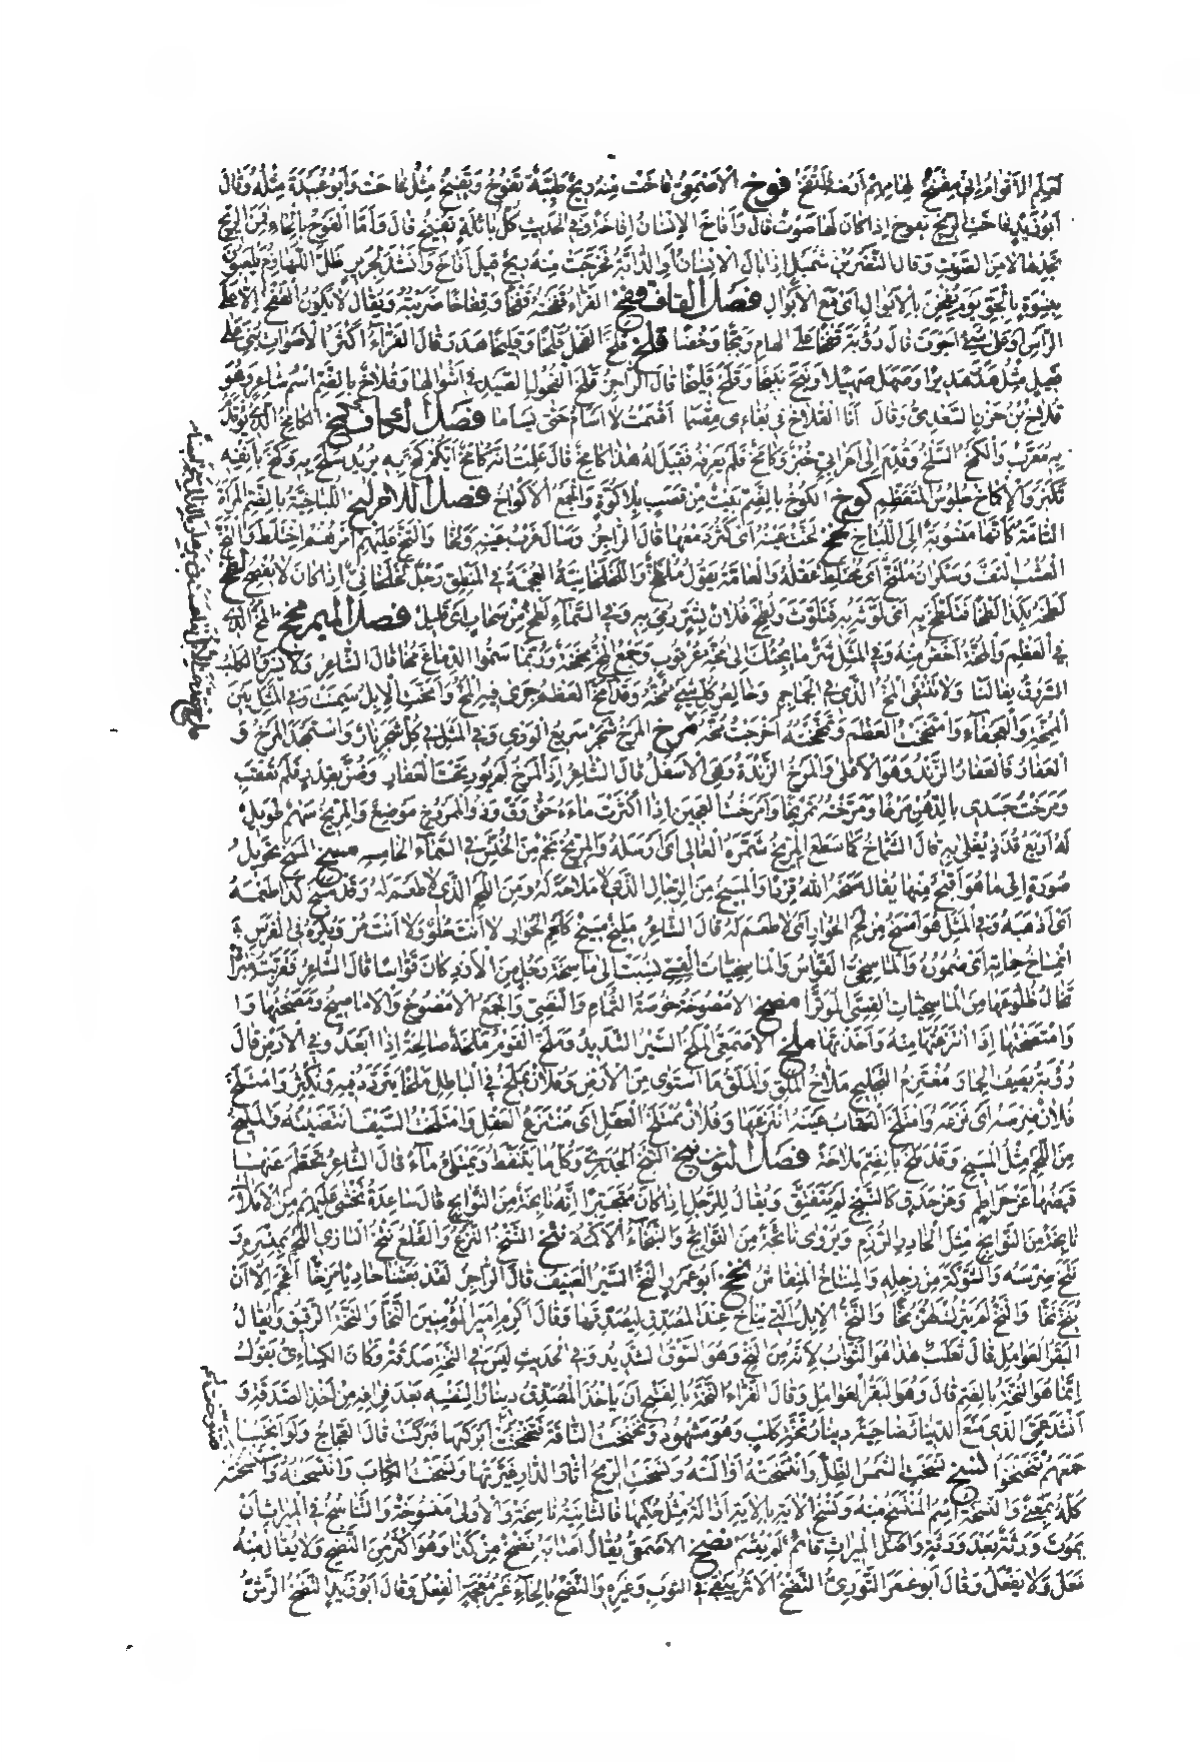 لعلم الأقوام أني مفنخ لهامهم أرضه وأنقخ فوخ الأصمعي فاخت منه ريح طيبة تفوخ وتفيخ مثل فاحت وأبو عبيدة مثله وقال
أبو زيد فاخت الريح تفوخ إذا كان لها صوت قال وأفاخ الإنسان إفاخة وفي الحديث كل بائلة تفيخ قال وأما الفوح بالحاء فمن الريح
تجدها لا من الصوت وقال النضر بن شميل إذا بال الإنسان أو الدابة فخرجت منه ريح قيل أفاخ وأنشد لجرير ظل اللهازم يلعبون
بنسوة بالجو يوم يفخن بالأبوال أي مع الأبوال فصل القاف قفخ الفراء قفخته قفخا وقفاخا ضربته ويقال لا يكون القفخ إلا على
الرأس وعلى شيء أجوف قال رؤبة قفخا على الهام وبجا وخضا قلخ قلخ الفحل قلخا وقليخا هدر وقال الفراء أكثر الأصوات بني على
فعيل مثل هدر هديرا وصهل صهيلا ونبح نبيحا وقلخ قليخا قال الراجز قلخ الفحول الصيد في أشوالها وقلاخ بالضم اسم شاعر وهو
قلاخ بن حزن السعدي وقال أنا القلاخ في بغائي مقسما أقسمت لا أسأم حتى يسأما فصل الكاف كمخ الكامخ الذي يؤتدم
به معرب والكمخ السلح وقدم إلى أعرابي خبز وكامخ فلم يعرفه فقيل له هذا كامخ قال علمت أنه كامخ أيكم كمخ به يريد سلح به وكمخ بأنفه
تكبر والإكماخ جلوس المتعظم كوخ الكوخ بالضم بيت من قصب بلا كوة والجمع الأكواخ فصل اللام لبخ اللباخية بالضم المرأة
التامة كأنها منسوبة إلى اللباخ لخخ لخت عينه أي كثر دمعها قال الراجز وسال غرب عينه ولخا والتخ عليهم أمرهم اختلط والتخ
العشب التف وسكران ملتخ أي مختلط عقله والعامة يقول ملطخ واللخلخانية العجمة في المنطق رجل لخلخاني إذا كان لا يفصح لطخ
لطخه بكذا لطخا فتلطخ به أي لوثه به فتلوث ولطخ فلان بشر رمي به وفي السماء لطخ من سحاب أي قليل فصل الميم مخخ المخ الذي
في العظم والمخة أخص منه وفي المثل شر ما يجيئك إلى مخة عرقوب وجمع المخ مخخة وربما سموا الدماغ مخا قال الشاعر ولا يسرق الكلب
السروق نعالنا ولا ننتقي المخ الذي في الجماجم وخالص كل شيء مخه وقد أمخ العظم جرى فيه المخ وأمخت الإبل سمنت وفي المثل بين
الممخة والعجفاء وامتخخت العظم وتمخخته أخرجت مخه مرخ المرخ شجر سريع الوري وفي المثل في كل شجر نار واستمجد المرخ و
العفار فالعفار الزند وهو الأعلى والمرخ الزندة وهي الأسفل قال الشاعر إذا المرخ لم يور تحت العفار وضن بقدر فلم تعقب
ومرخت جسدي بالدهن مرخا ومرخته تمريخا وأمرخت العجين إذا أكثرت ماءه حتى رق وذو الممروخ موضع والمريخ سهم طويل
له أربع قذذ يغلى به قال الشماخ كما سطع المريخ شمره الغالي أي أرسله والمريخ نجم من الخنس في السماء الخامسة مسخ المسخ تحويل
صورة إلى ما هو أقبح منها يقال مسخه الله قردا والمسيخ من الرجال الذي لا ملاحة له ومن اللحم الذي لا طعم له وقد مسخ كذا طعمه
أي أذهبه وفي المثل هو أمسخ من لحم الحوار أي لا طعم له قال الشاعر مليخ مسيخ كلحم الحوار لا أنت حلو ولا أنت مر ويكره في الفرس
انمساخ حماته أي ضموره والماسخي القواس والماسخيات القسي نسبت إلى ماسخة رجل من الأزد كان قواسا قال الشاعر فقربت مبراة
تخال ضلوعها من الماسخيات القسي الموترا مصخ الأمصوخة خوصة الثمام والنصي والجمع الأمصوخ والأماصيخ ومصختها وا
وامتصختها إذا انتزعتها منه وأخذتها ملخ الأصمعي الملخ السير الشديد وملخ القوم ملخة صالحة إذا أبعدوا في الأرض قال
رؤبة يصف الحمار معتزم التجليح ملاخ الملق والملق ما استوى من الأرض وفلان يملخ في الباطل ملخا يتردد فيه ويكثر وامتلخ
فلان ضرسه أي نزعه وامتلخ العقاب عينه انتزعها وفلان ممتلخ العقل أي منتزع العقل وامتلخت السيف انتضيته والمليخ
من اللحم مثل المسيخ وقد ملخ بالضم ملاخة فصل النون نبخ النبخ الجدري وكل ما يتنفط ويمتلئ ماء قال الشاعر تحطم عنها
قيضها عن خراطم وعن حدق كالنبخ لم يتفتق ويقال للرجل إذا كان متجبرا إنه نابخة من النوابخ قال ساعدة تخشى عليهم من الأملاك
نابخة من النوابخ مثل الحادر الرزم ويروى نائجة من النوائج والنبخاء الأكمة نتخ النتخ النزع والقلع نتخ البازي اللحم بمنسره و
نتخ ضرسه والشوكة من رجله والمنتاخ المنقاش نخخ أبو عمرو النخ السير العنيف قال الراجز لقد بعثنا حاديا مزخا أعجم إلا أن
ينخ نخا والنخ لم يترك لهن مخا والنخ الإبل التي تناخ عند المصدق ليصدقها وقال أكرم أمير المؤمنين النخا والنخة الرقيق ويقال
البقر العوامل قال ثعلب هذا هو الصواب لأنه من النخ وهو السوق الشديد وفي الحديث ليس في النخة صدقة وكان الكسائي يقول
إنما هو النخة بالضم قال وهو البقر العوامل وقال الفراء النخة بالفتح أن يأخذ المصدق دينارا لنفسه بعد فراغه من أخذ الصدقة و
أنشد عمي الذي منع الدينار ضاحية دينار نخة كلب وهو مشهود ونخنخت الناقة فتنخنخت أبركتها فبركت قال العجاج ولو أنخنا
جمعهم تنخنخوا نسخ نسخت الشمس الظل وانتسخته أزالته ونسخت الريح آثار الدار غيرتها ونسخت الكتاب وانتسخته واستنسخته
كله بمعنى والنسخة اسم المنتسخ منه ونسخ الآية بالآية إزالة مثل حكمها فالثانية ناسخة والأولى منسوخة والتناسخ في الميراث أن
يموت ورثة بعد ورثة وأصل الميراث قائم لم يقسم نضخ الأصمعي يقال أصابه نضخ من كذا وهو أكثر من النضح ولا يقال منه
فعل ولا يفعل وقال أبو عمرو التوزي النضخ الأثر يبقى في الثوب وغيره والنضح بالحاء غير معجمة الفعل وقال أبو زيد النضخ الرش